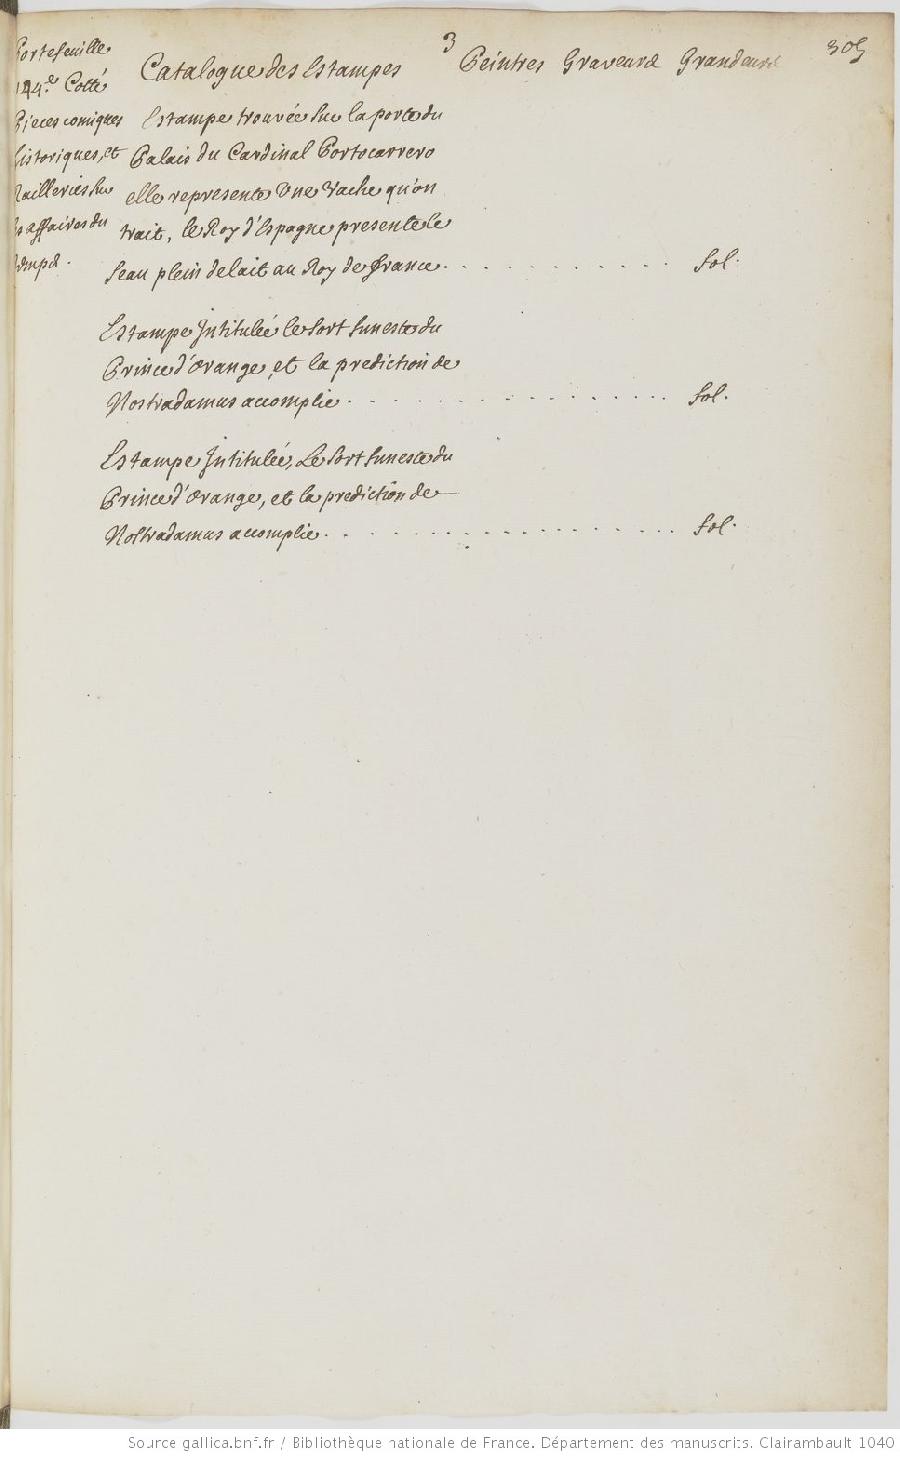 3
305
Portefeuille
144.e Cotté
Pieces comiques
historiques, et
Railleries sur
les affaires du
temps.
Catalogue des Estampes Peintres Graveurs Grandeurs
Estampe trouvée sur la porte du
Palais du Cardinal Portocarrero
elle represente Une Vache qu'on
trait, le Roy d'Espagne presente le
seau plein de lait au Roy de france . . . . . . . . . . . . fol.
Estampe Intitulée le sort funeste du
Prince d'Orange, et la prediction de
Nostradamus accomplie . . . . . . . . . . . . . . . . fol.
Estampe Intitulée, Le sort funeste du
Prince d'Orange, et la prediction de
Nostradamus accomplie . . . . . . . . . . . . . . . . fol.
Source gallica.bnf.fr / Bibliothèque nationale de France. Département des manuscrits. Clairambault 1040